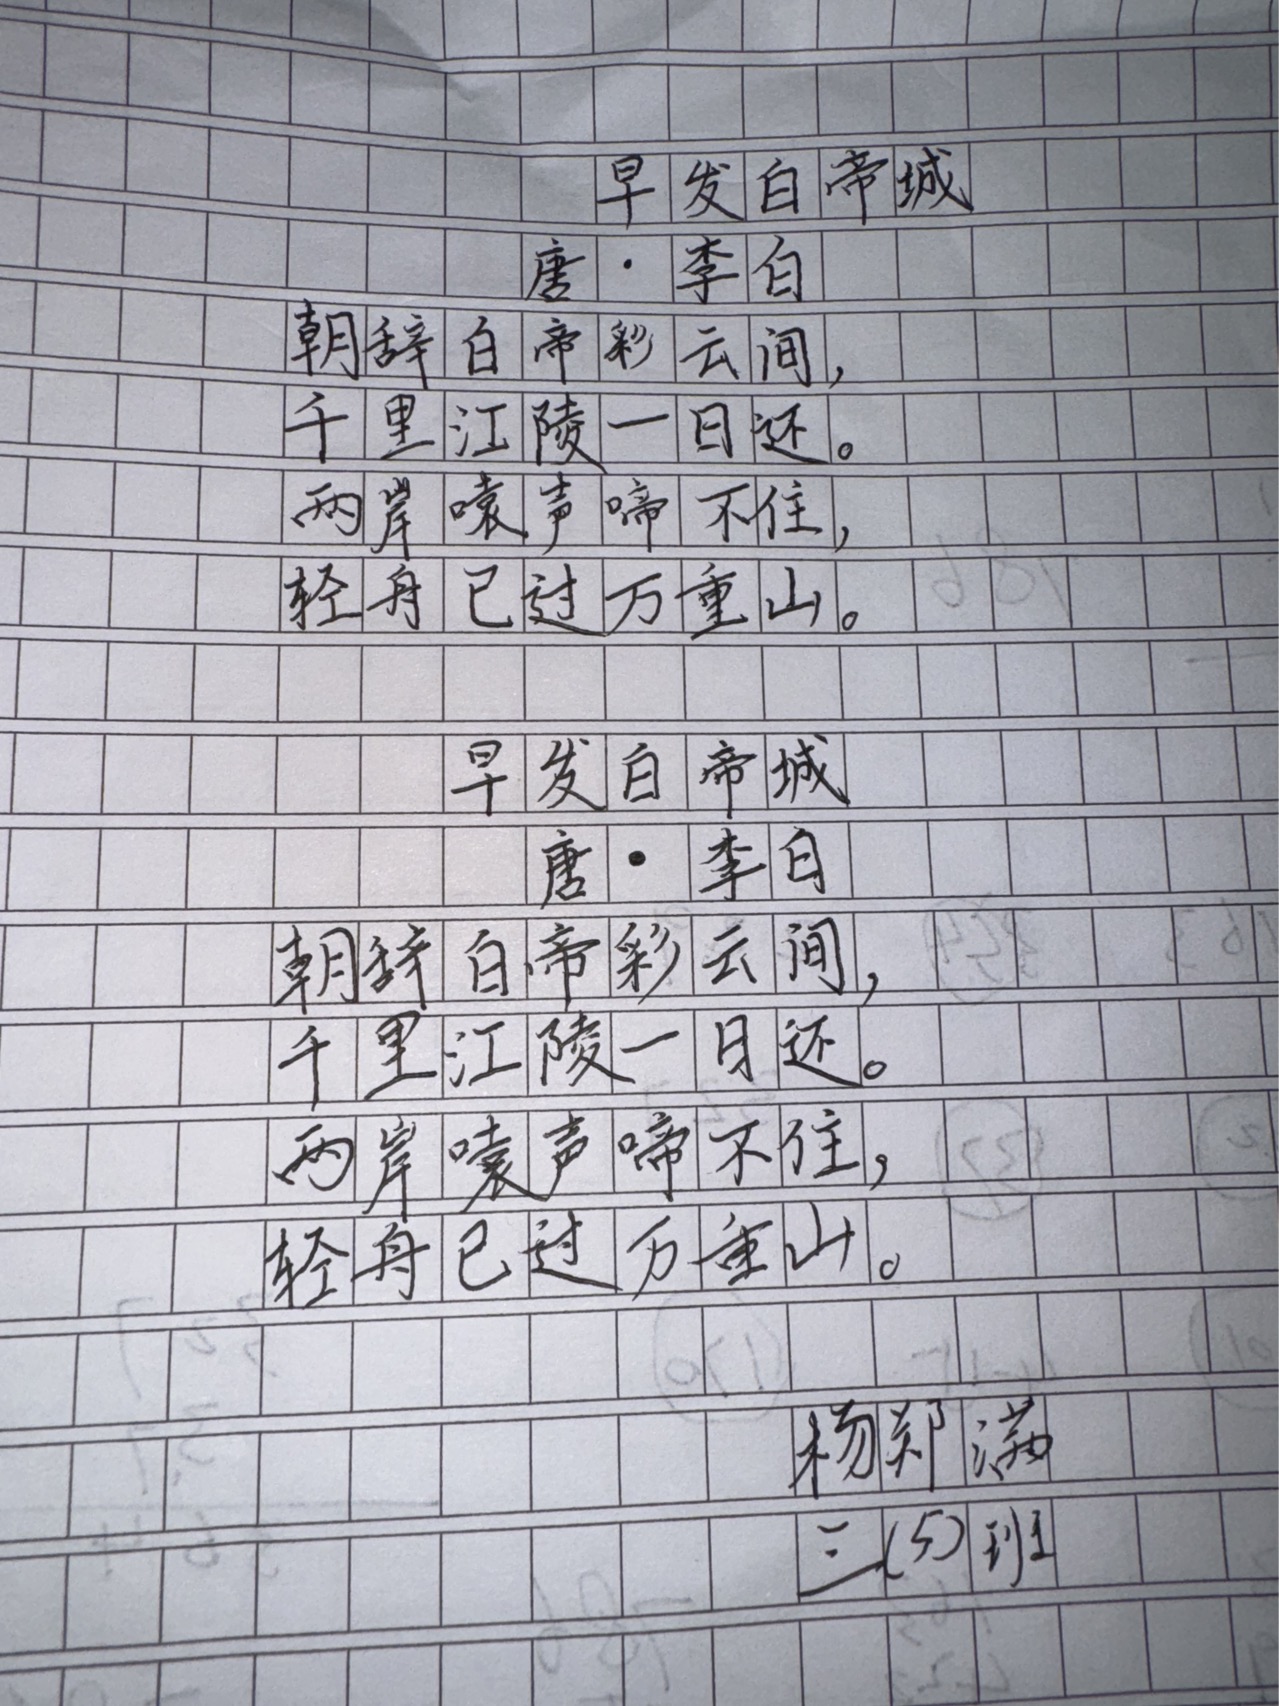 早发白帝城
唐·李白
朝辞白帝彩云间，
千里江陵一日还。
两岸嚎声啼不住，
轻舟已过万重山。
早发白帝城
唐·李白
朝辞白帝彩云间，
千里江陵一日还。
两岸嚎声啼不住，
轻舟已过万重山。
杨郑满
三(5)班